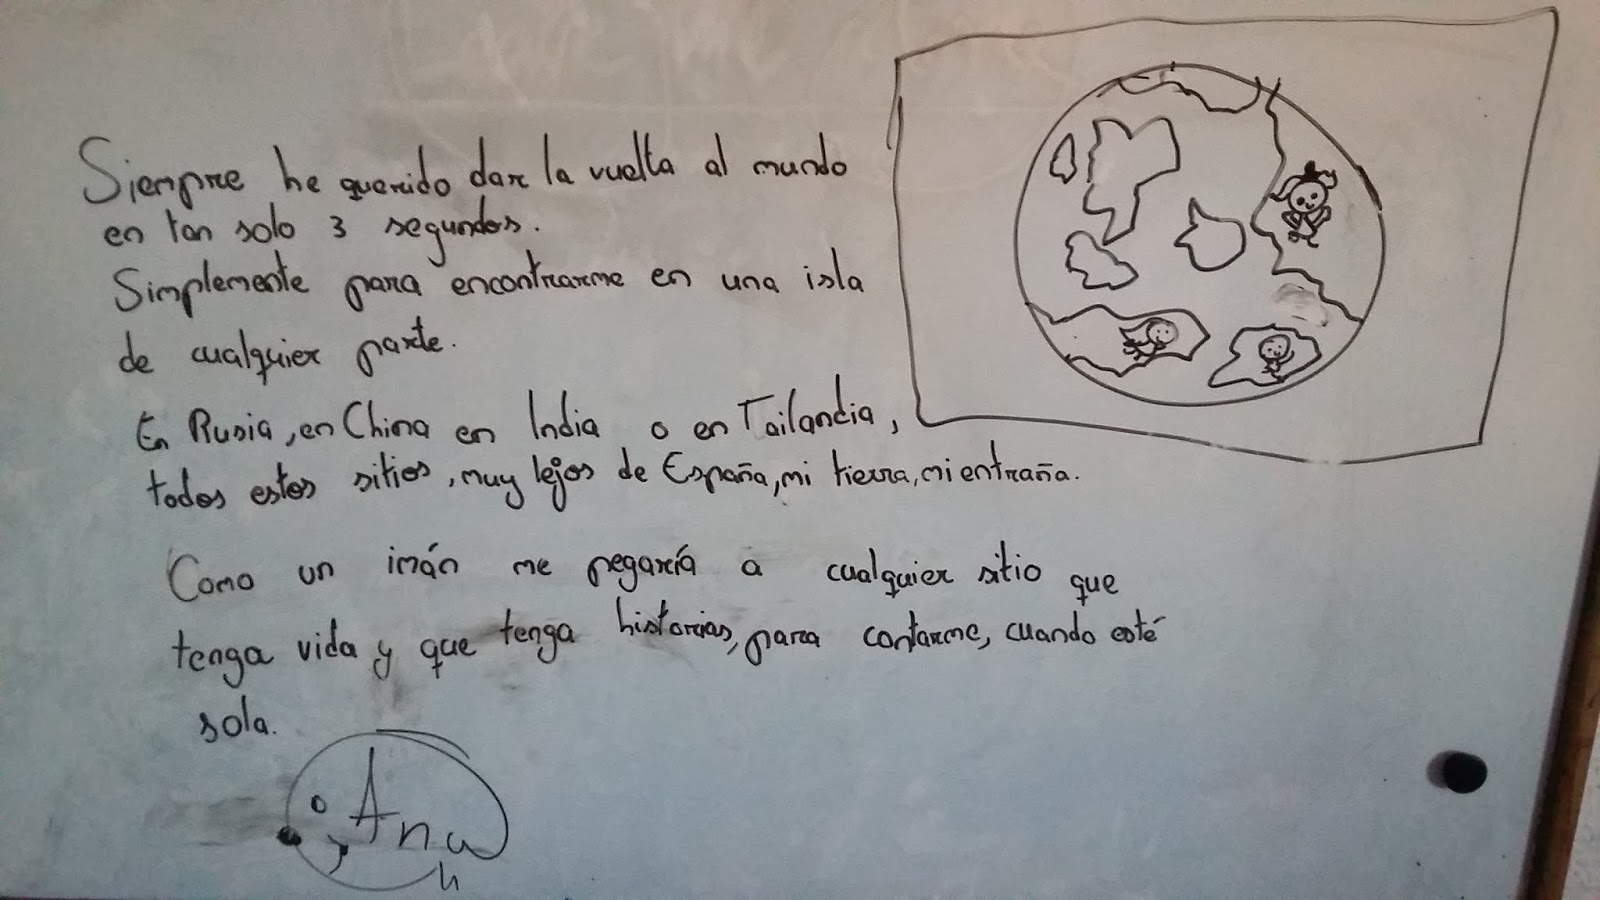 Siempre he querido dar la vuelta al mundo
en tan solo 3 segundos.
Simplemente para encontrarme en una isla
de cualquier parte.
En Rusia, en China en India o en Tailandia,
todos estos sitios, muy lejos de España, mi tierra, mi entraña.
Como un imán me pegaría a cualquier sitio que
tenga vida y que tenga historias, para contarme, cuando esté
sola.
Ana